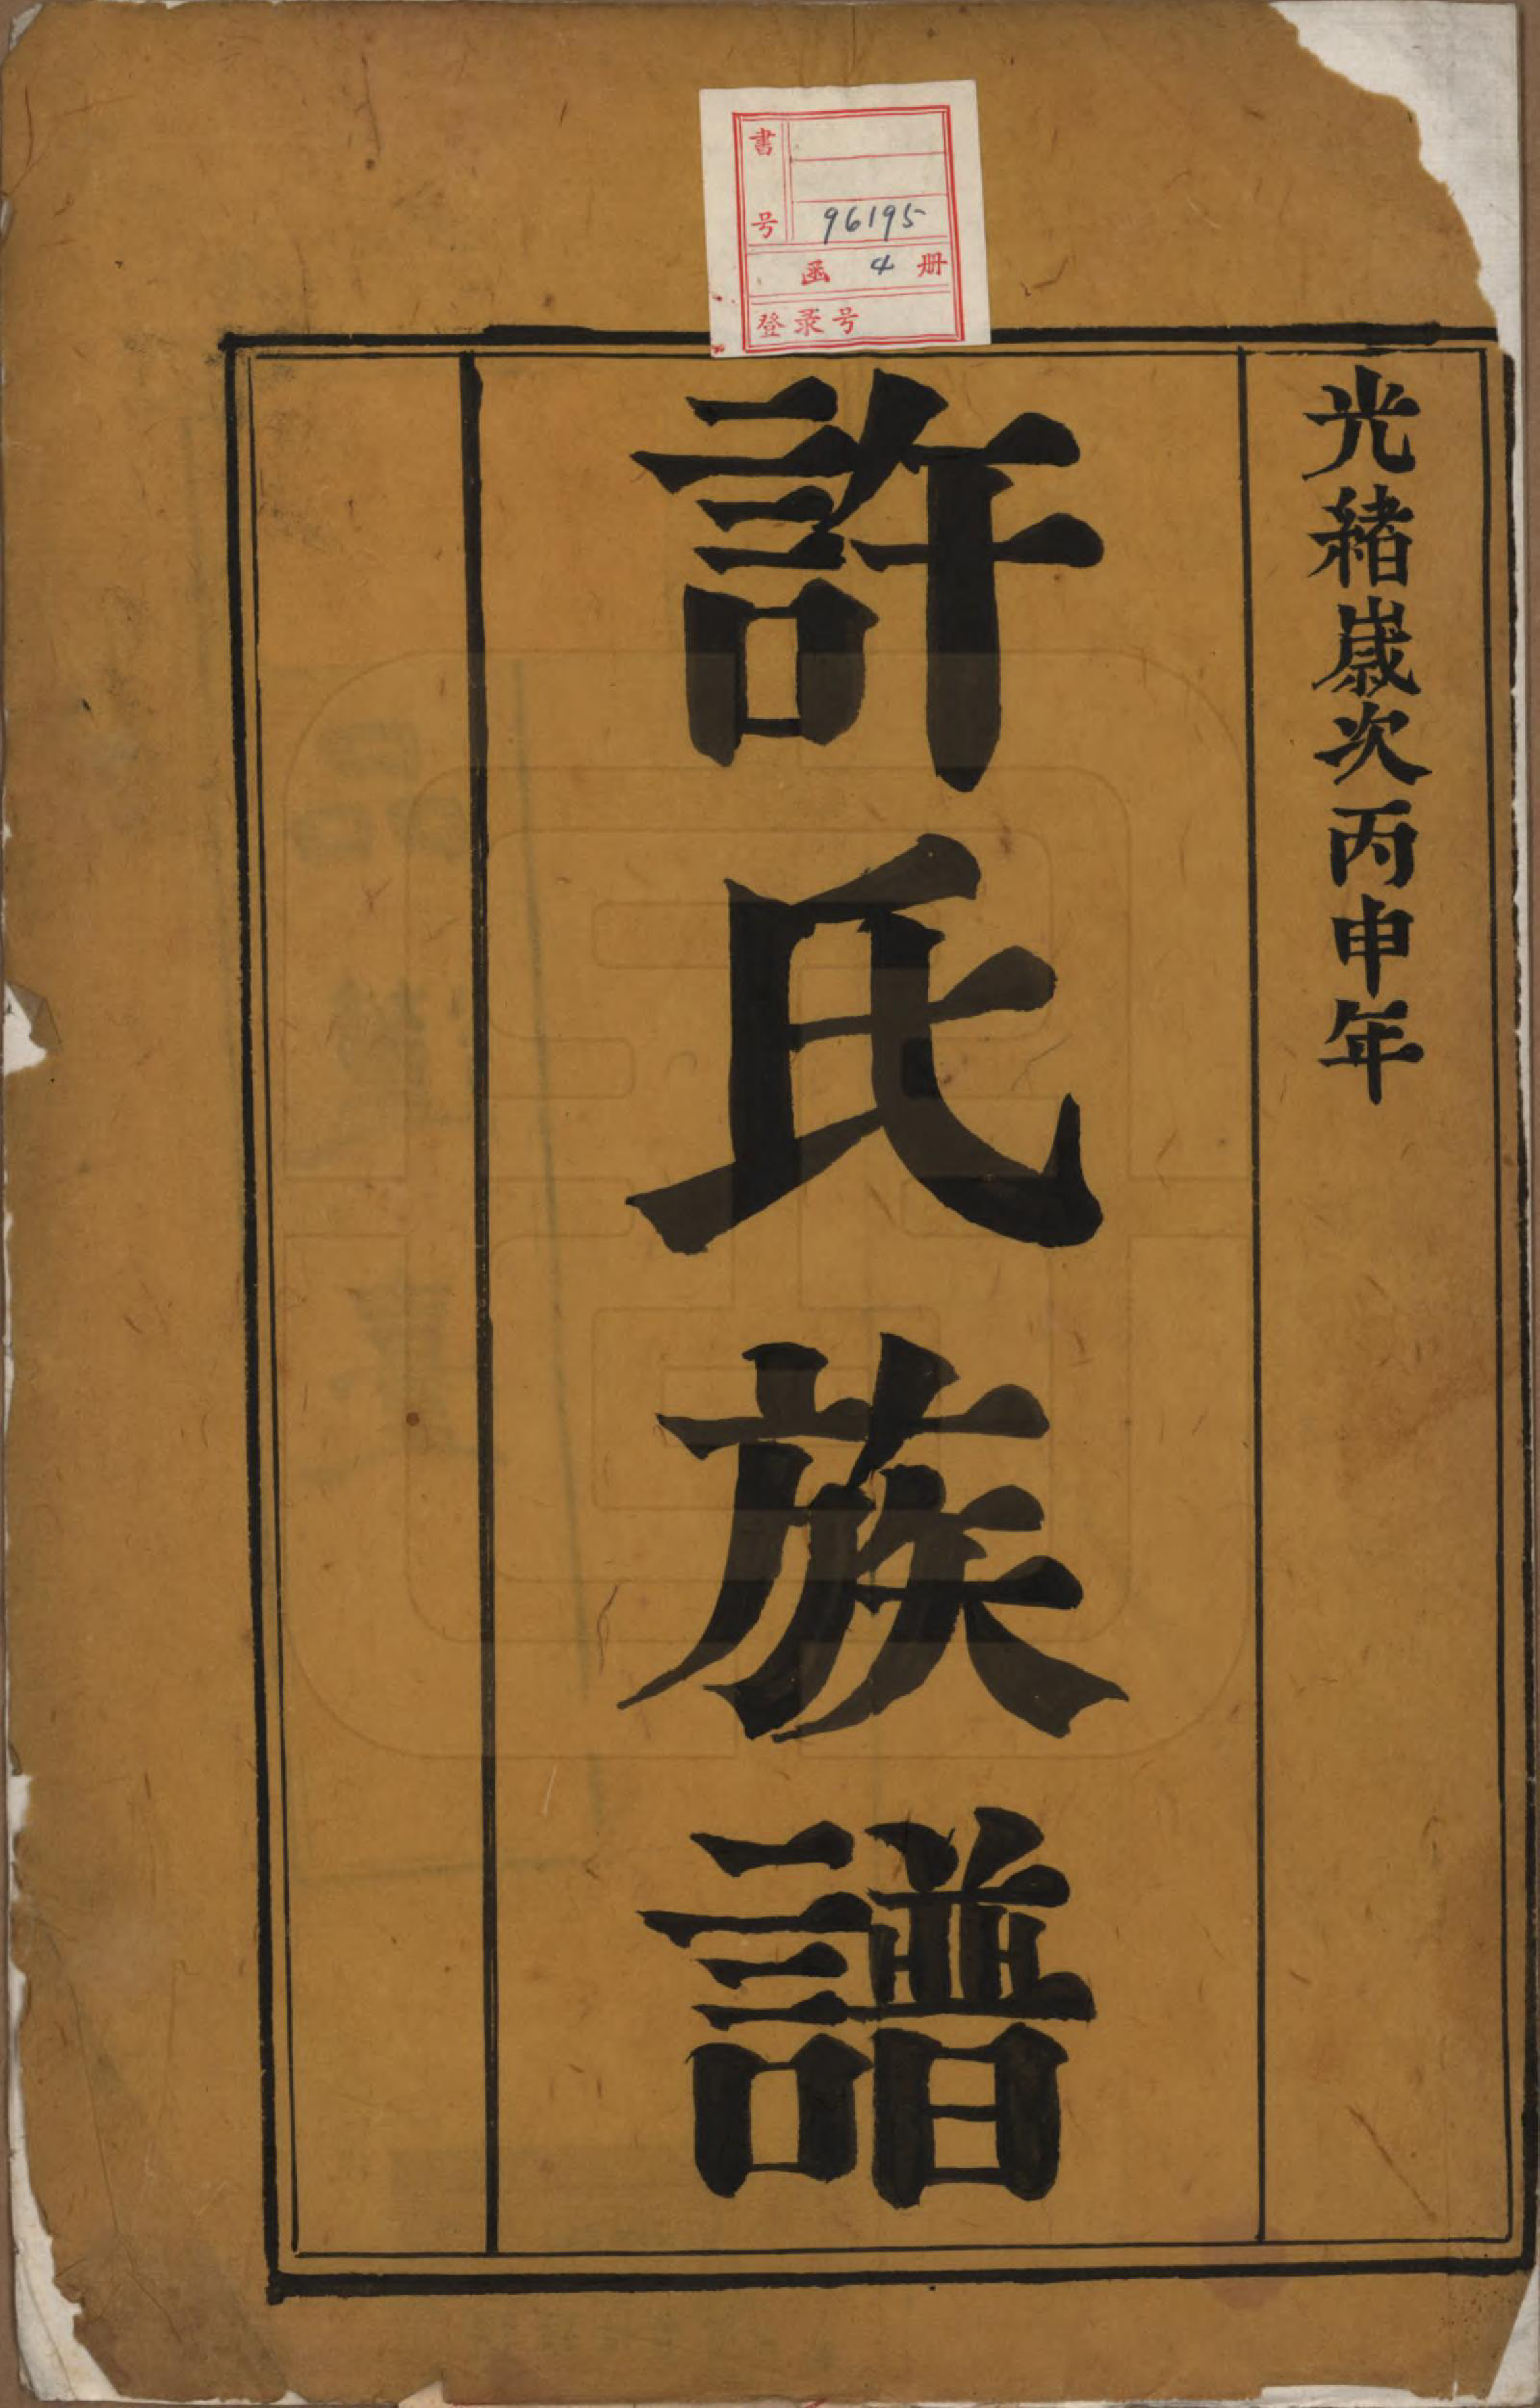 光緒歲次丙申年
許氏族譜
書号 96195
函 4 册
登录号